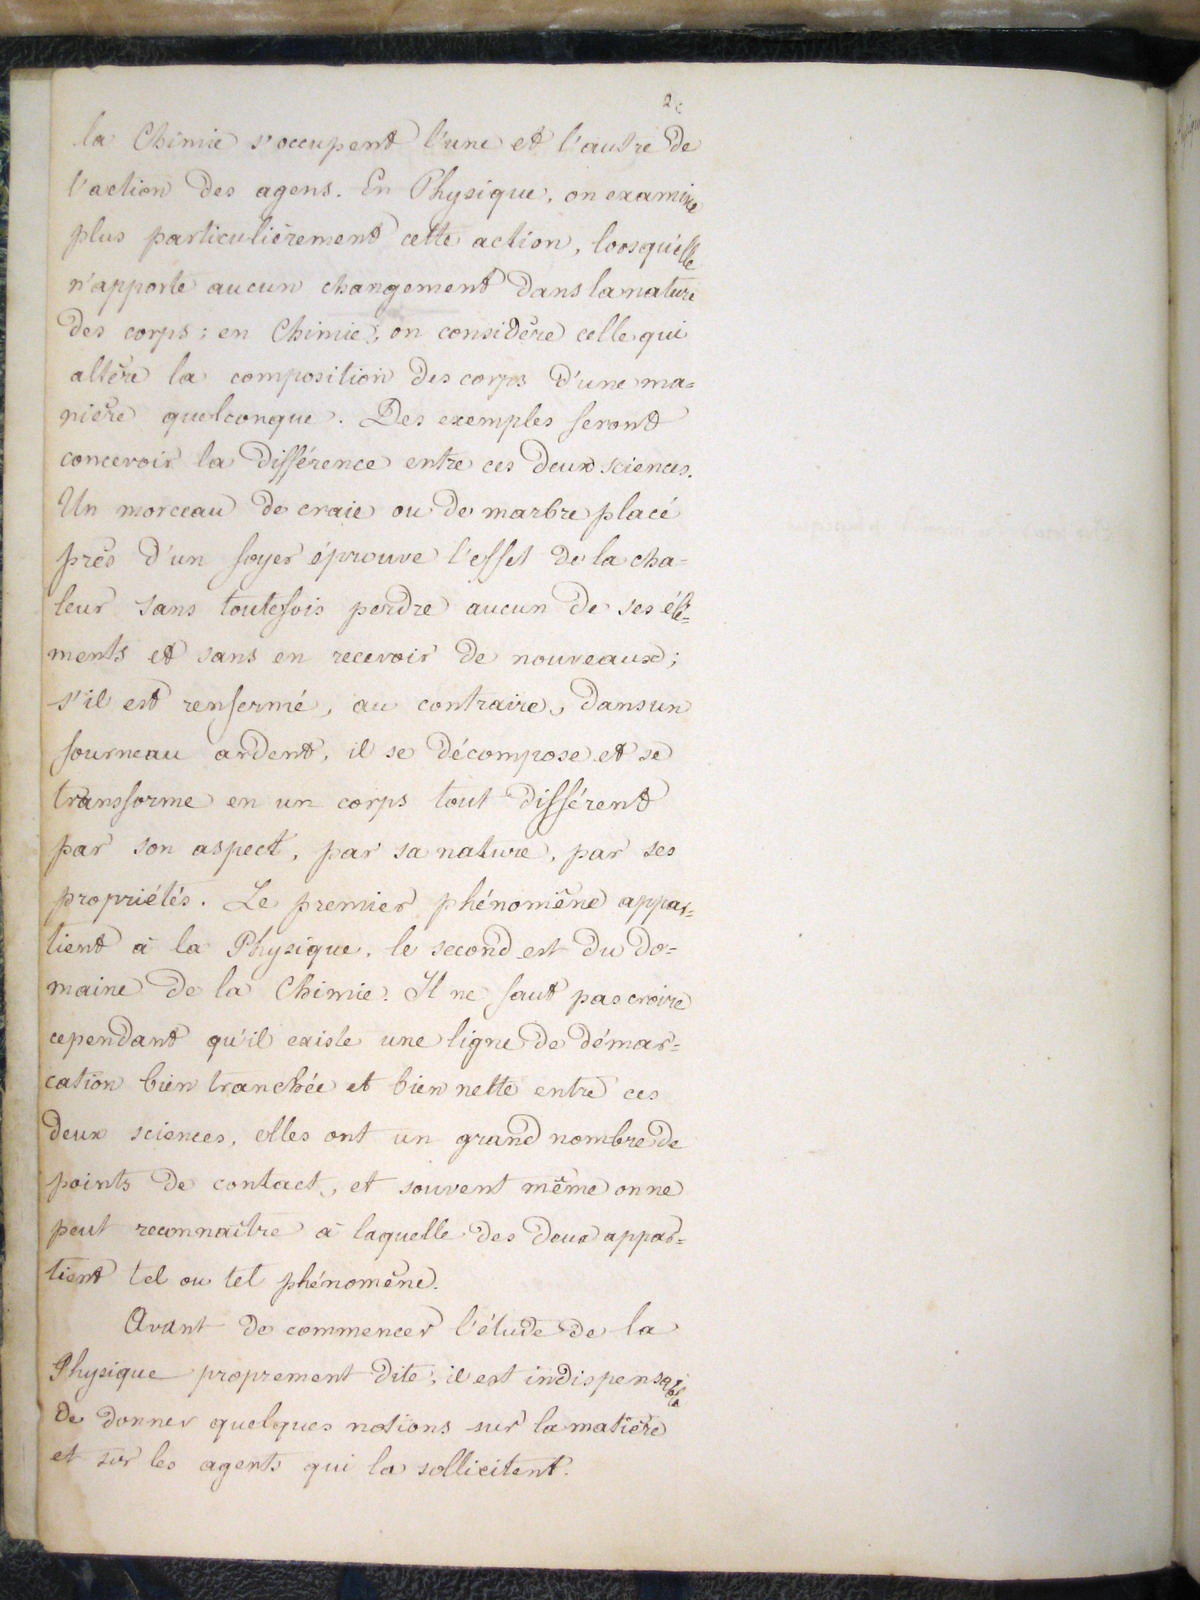 2.
la Chimie s'occupent l'une et l'autre de
l'action des agens. En Physique, on examine
plus particulièrement cette action, lorsqu'elle
n'apporte aucun changement dans la nature
des corps ; en Chimie, on considère celle qui
altère la composition des corps d'une ma=
nière quelconque. Des exemples feront
concevoir la différence entre ces deux sciences.
Un morceau de craie ou de marbre placé
près d'un foyer éprouve l'effet de la cha-
leur sans toutefois perdre aucun de ses élé=
ments et sans en recevoir de nouveaux ;
s'il est renfermé, au contraire, dans un
fourneau ardent, il se décompose et se
transforme en un corps tout différent
par son aspect, par sa nature, par ses
propriétés. Le premier phénomène appar=
tient à la Physique, le second est du do=
maine de la Chimie. Il ne faut pas croire
cependant qu'il existe une ligne de démar=
cation bien tranchée et bien nette entre ces
deux sciences, elles ont un grand nombre de
points de contact, et souvent même on ne
peut reconnaître à laquelle des deux appar=
tient tel ou tel phénomène.
Avant de commencer l'étude de la
Physique proprement dite, il est indispensable
de donner quelques notions sur la matière
et sur les agents qui la sollicitent.